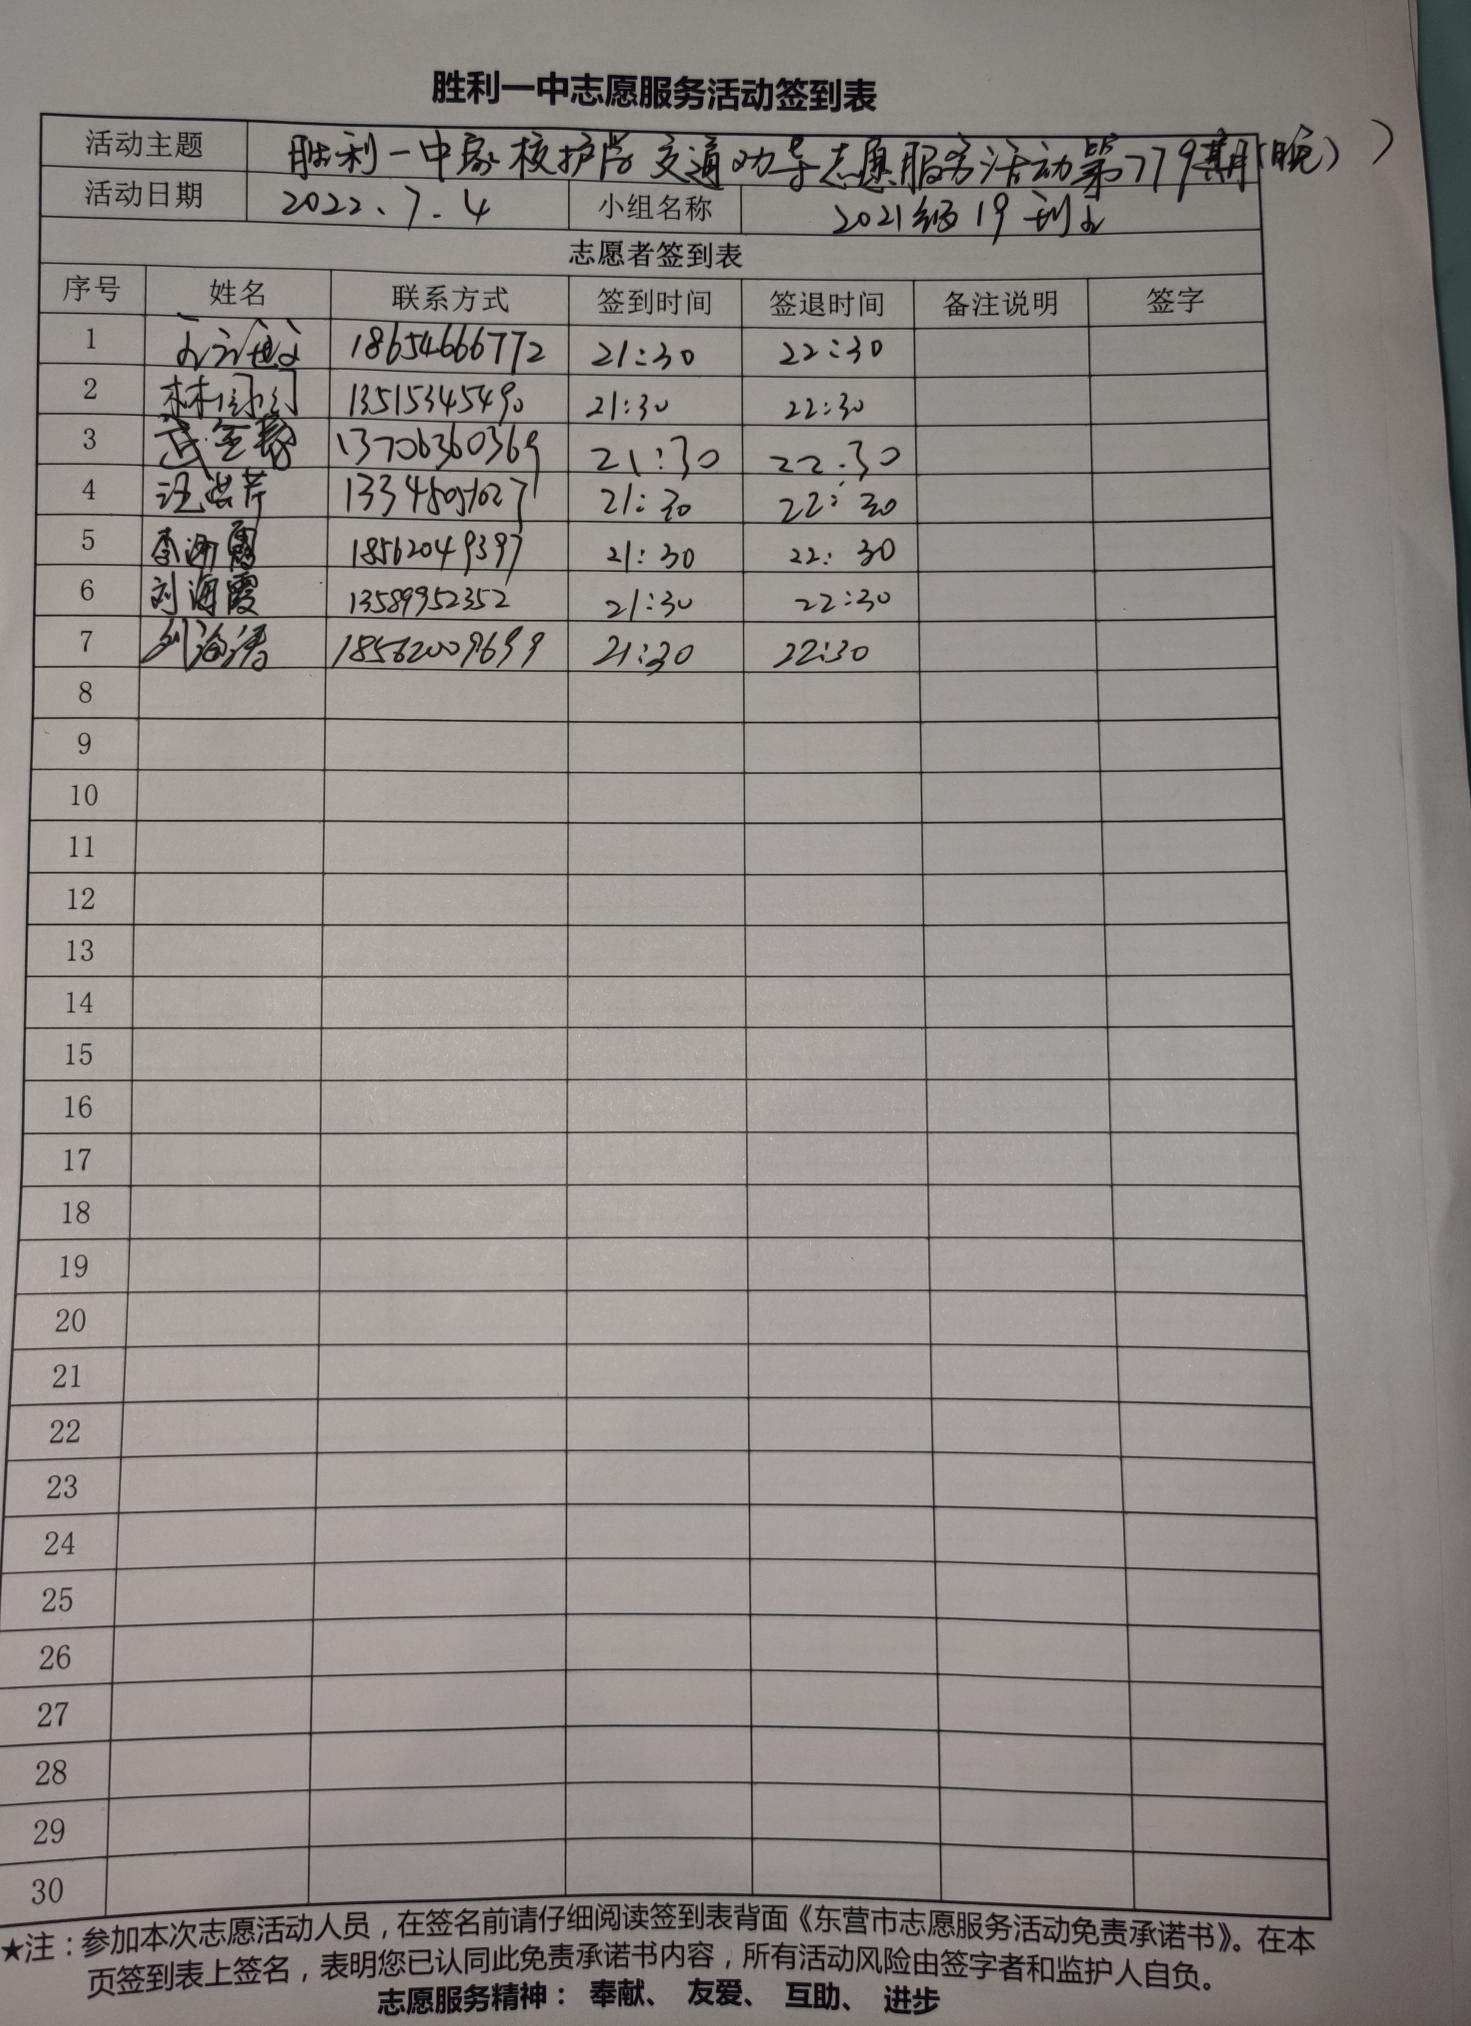 胜利一中志愿服务活动签到表
活动主题 胜利一中家校护学交通劝导志愿服务活动第779期(晚))
活动日期 2022.7.4 小组名称 2021级19
志愿者签到表
序号 姓名 联系方式 签到时间 签退时间 备注说明 签字
1 18654666772 21:30 22:30
2 13515345490 21:30 22:30
3 13706360369 21:30 22.30
4 汪洪芹 13345051027 21:30 22:30
5 18562049397 21:30 22:30
6 刘海霞 13589952352 21:30 22:30
7 18562009699 21:30 22:30
8
9
10
11
12
13
14
15
16
17
18
19
20
21
22
23
24
25
26
27
28
29
30
★注：参加本次志愿活动人员，在签名前请仔细阅读签到表背面《东营市志愿服务活动免责承诺书》。在本
页签到表上签名，表明您已认同此免责承诺书内容，所有活动风险由签字者和监护人自负。
志愿服务精神：奉献、友爱、互助、进步